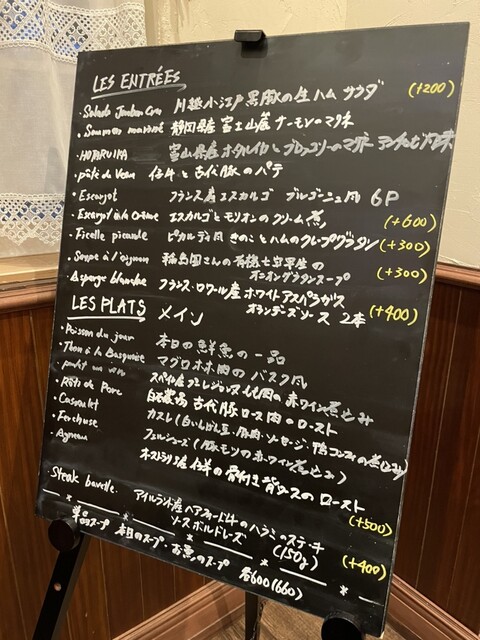 LES ENTRÉES
・Salade Jambon Cru 川越小江戸黒豚の生ハム サラダ (+200)
・Saumon mariné 静岡県産 富士山麓 サーモンのマリネ
・HOTARUIKA 富山県産 ホタルイカとブロッコリーのマリネ
・pâté de veau 仔牛と古代豚のパテ
・Escargot フランス産エスカルゴ ブルゴーニュ風 6P
・Escargot à la Crème エスカルゴとモリオンのクリーム煮 (+600)
・Ficelle picarde ピカルディ風 きのことハムのクレープグラタン (+300)
・Soupe à l'oignon 飯島園さんの有機と平生の
オニオングラタンスープ (+300)
・Asperge blanche フランス・ロワール産 ホワイトアスパラガス
オランデーズソース 2本 (+400)
LES PLATS メイン
・Poisson du jour 本日の鮮魚の一品
・Thon à la Basquaise マグロホホ肉のバスク風
スペイン産 もも肉の赤ワイン煮込み
・Rôti de Porc 白石農場 古代豚ロース肉のロースト
・Cassoulet カスレ(白いんげん豆・豚肉・ソーセージ・鴨コンフィの煮込み)
・Forchuse フェルシューズ(豚モツの赤ワイン煮込み)
・Agneau オーストラリア産 仔羊の骨付き背ロースのロースト
・Steak bavette. アイルランド産ヘアフォード牛のハラミのステーキ (+500)
ソースボルドレーズ (150g) (+400)
単品スープ 本日のスープ・お魚のスープ 各600(660)